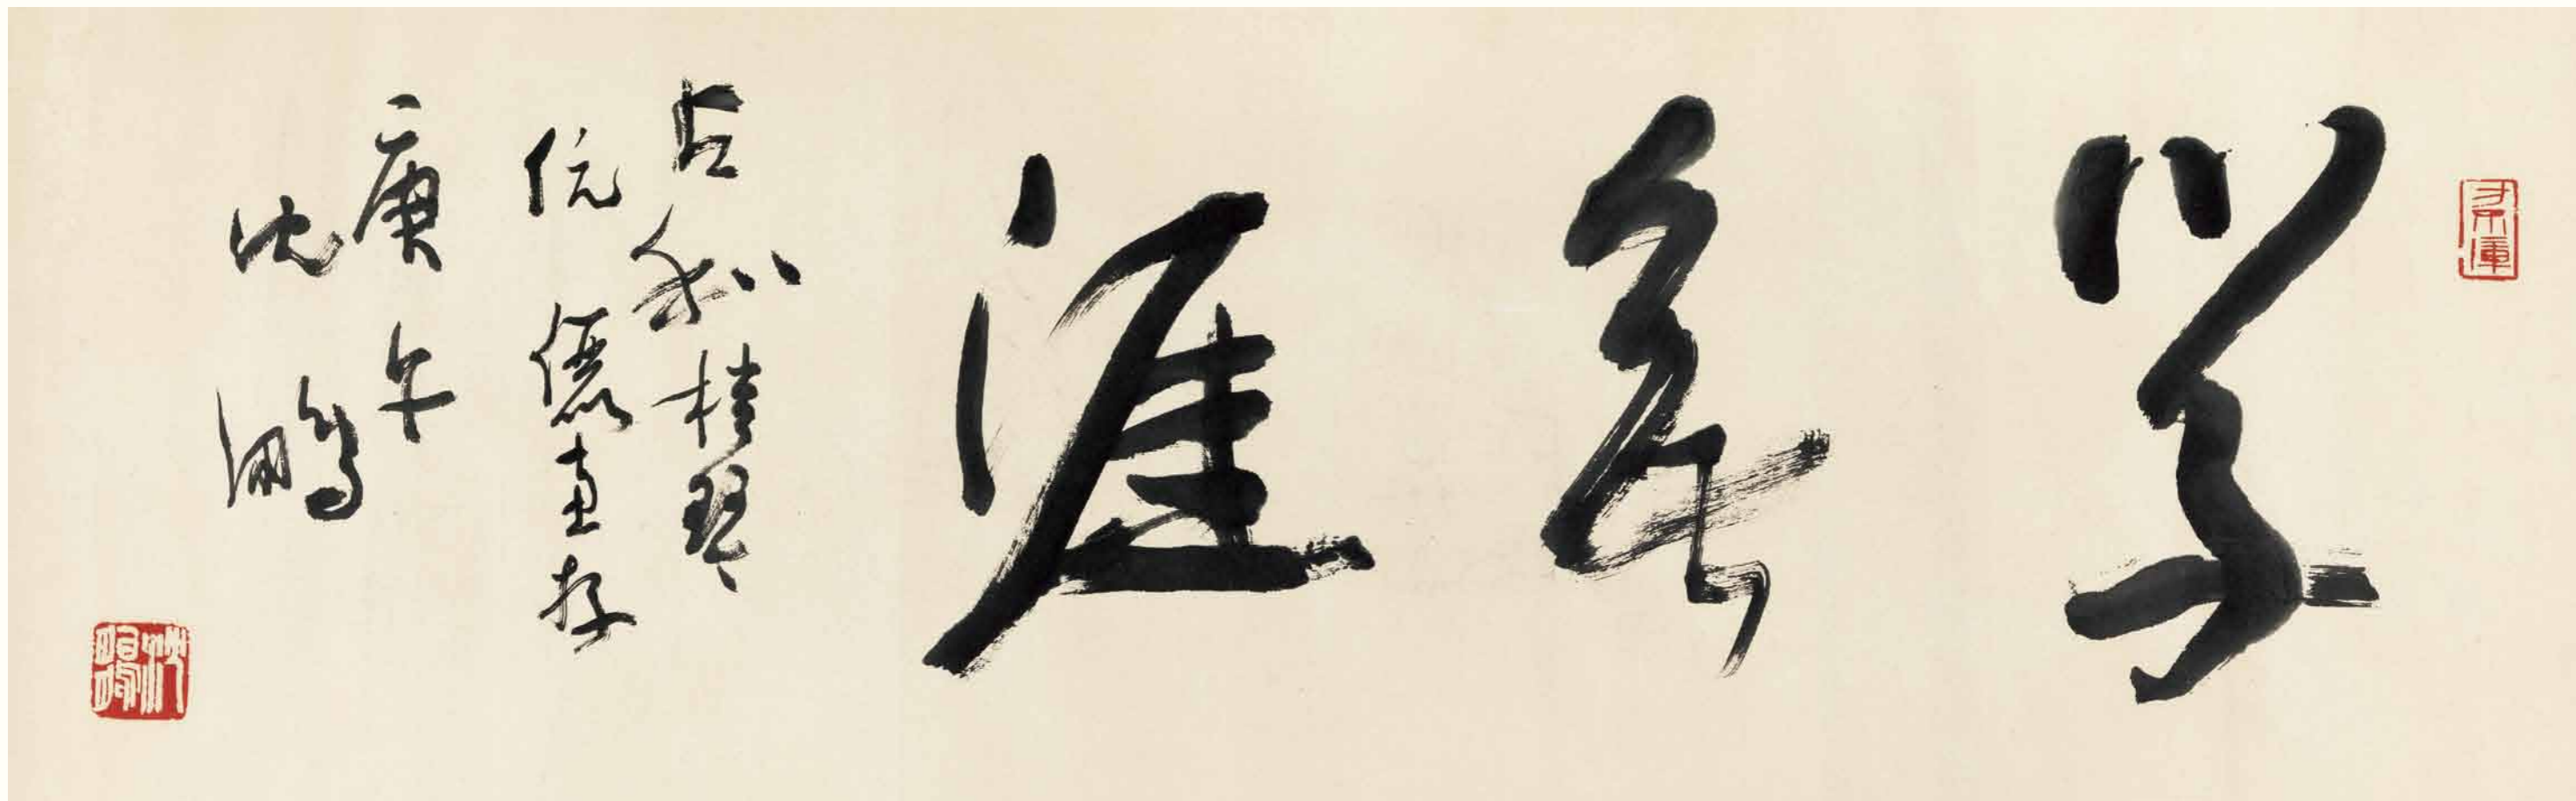 学無涯
占秋桂琴
伉儷惠存
庚午
沈鵬
沈鵬